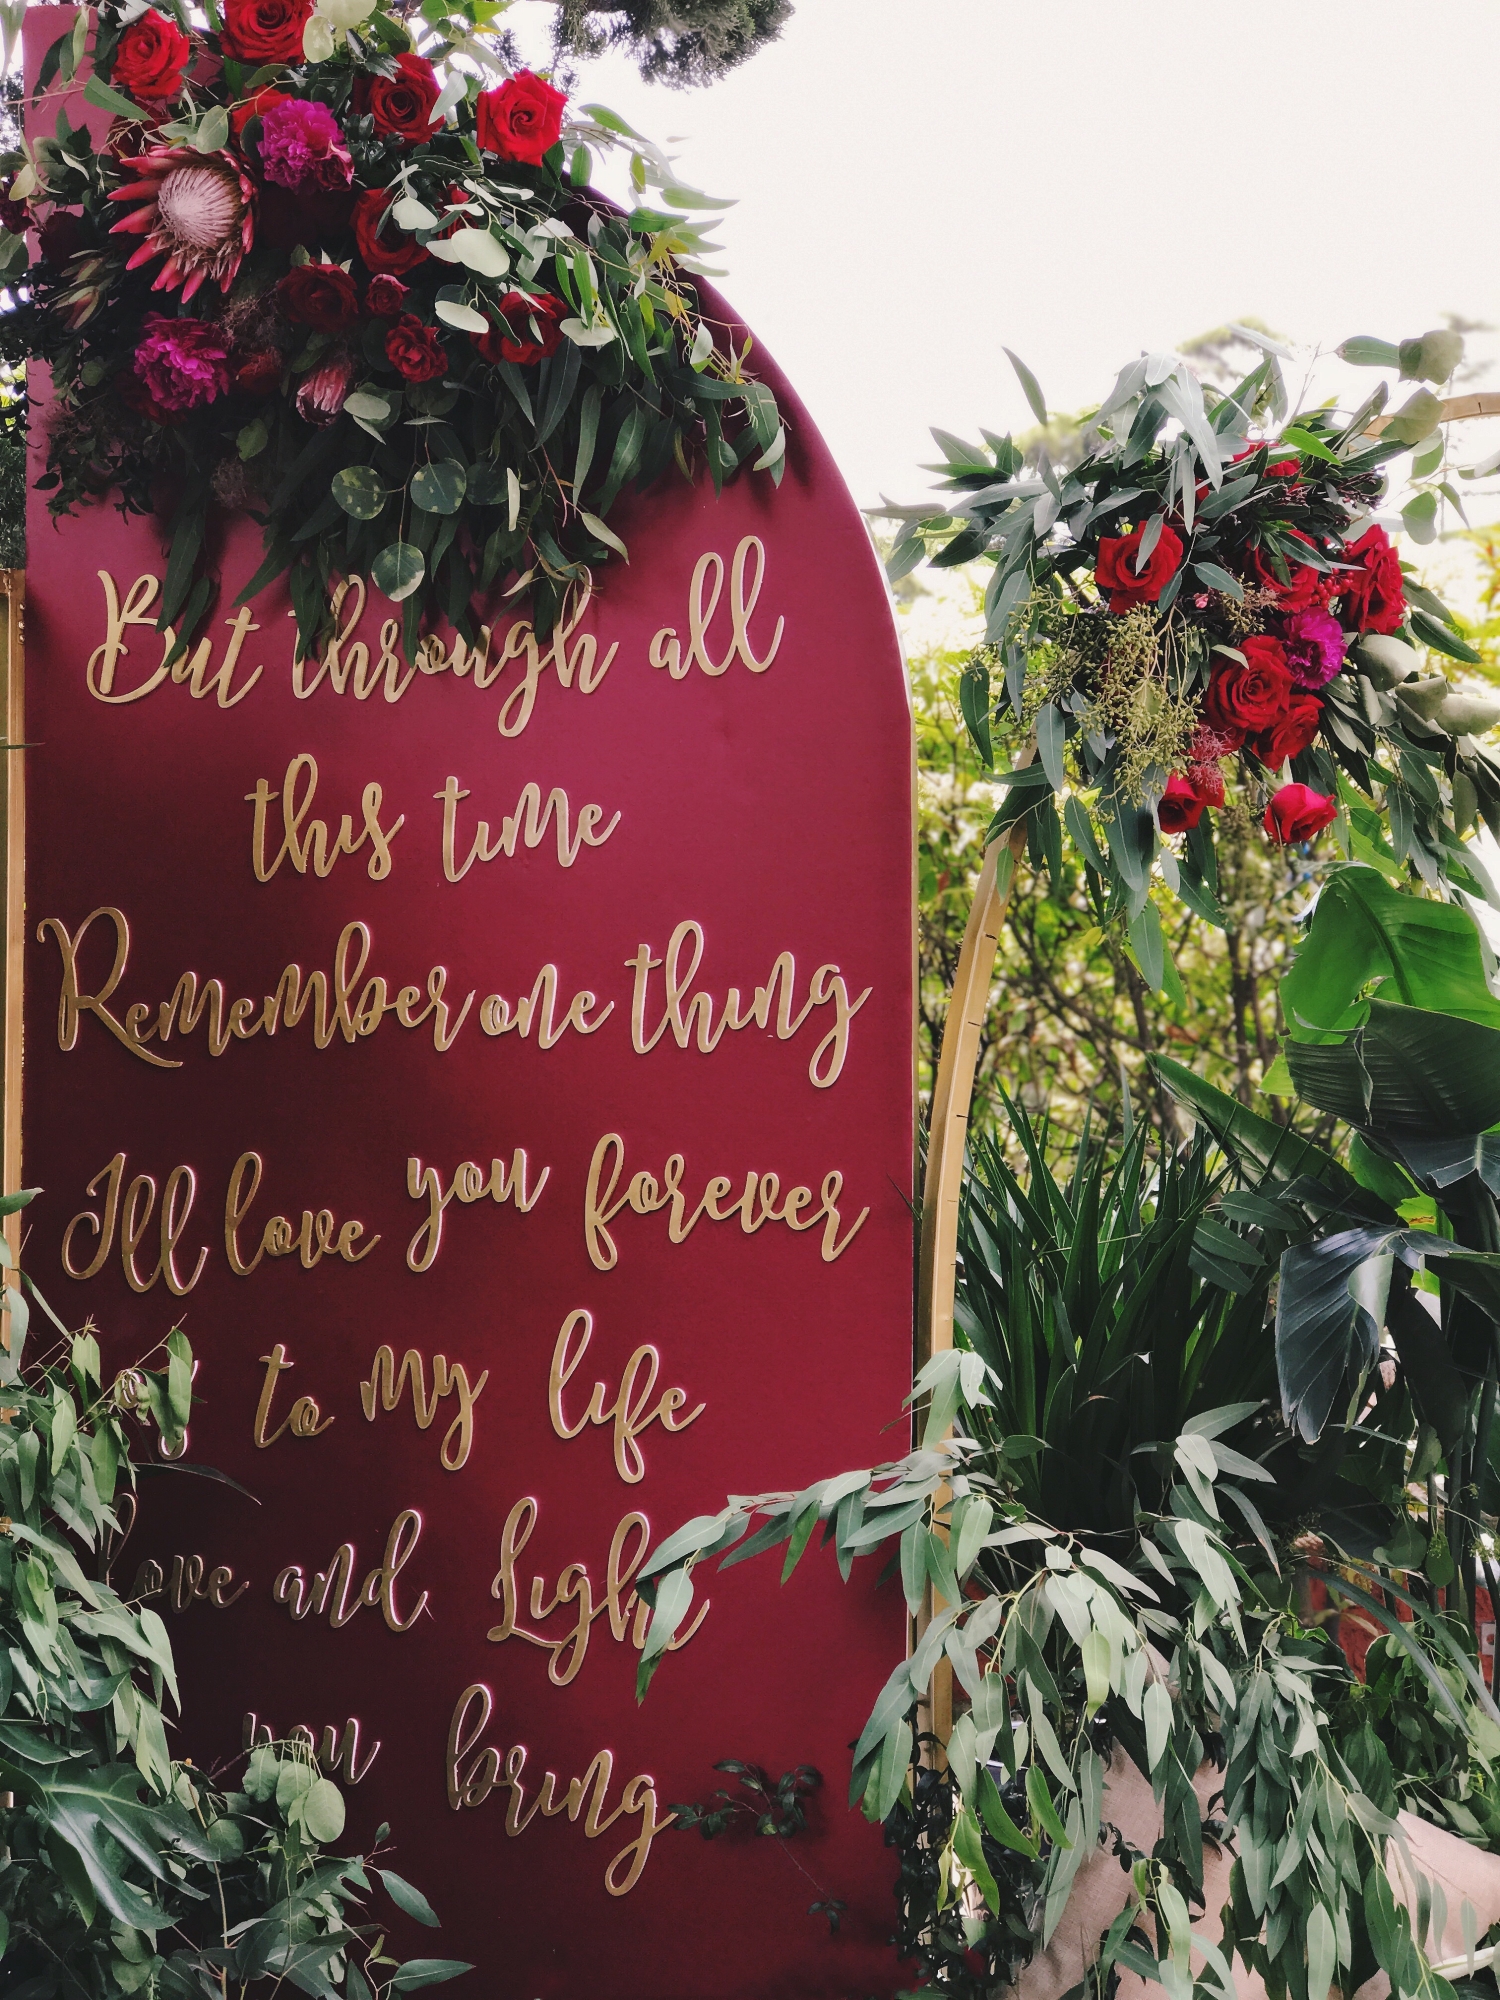 But through all
this time
Remember one thing
I'll love you forever
to my life
and Light
you bring